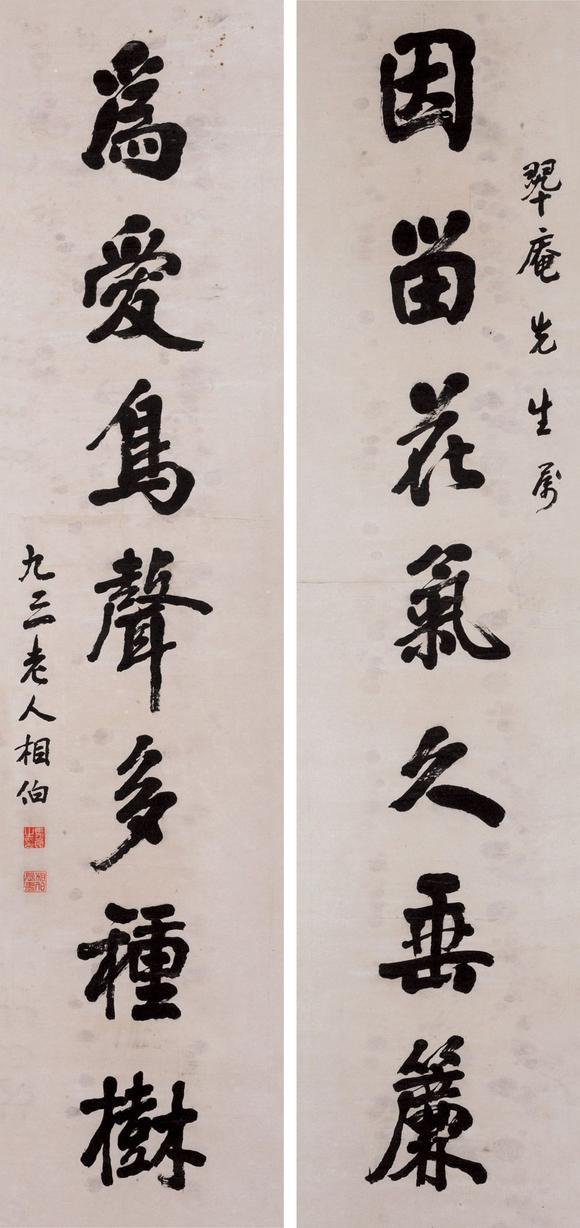 翆庵先生属
因留花氣久垂簾
為愛鳥聲多種樹
九三老人相伯